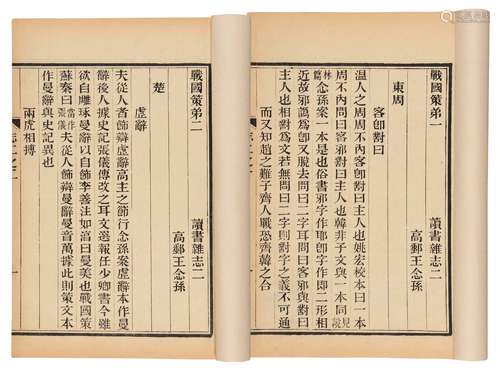 戰國策弟一　讀書雜志二
高郵王念孫
東周
客卽對曰
溫人之周周不內客卽對曰主人也姚宏校本曰一本
周不內問曰客邪對曰主人也韓非子文與一本同見說
林篇念孫案一本是也俗書邪字作耶卽字作即二形相
近故邪譌爲卽又脫去問曰二字問曰客邪與對曰
主人也相對爲文若無問曰二字則對字之義不可通
而又知趙之難子齊人戰恐齊韓之合
戰國策弟二　讀書雜志二
高郵王念孫
楚
虛辭
夫從人者飾辯虛辭高主之節行念孫案虛辭本作曼
辭後人據史記張儀傳改之耳文選報任少卿書今雖
欲自雕琢曼辭以自飾李善注如淳曰曼美也戰國策
蘇秦曰當作張儀夫從人飾辯曼辭曼音萬據此則策文本
作曼辭與史記異也
兩虎相搏